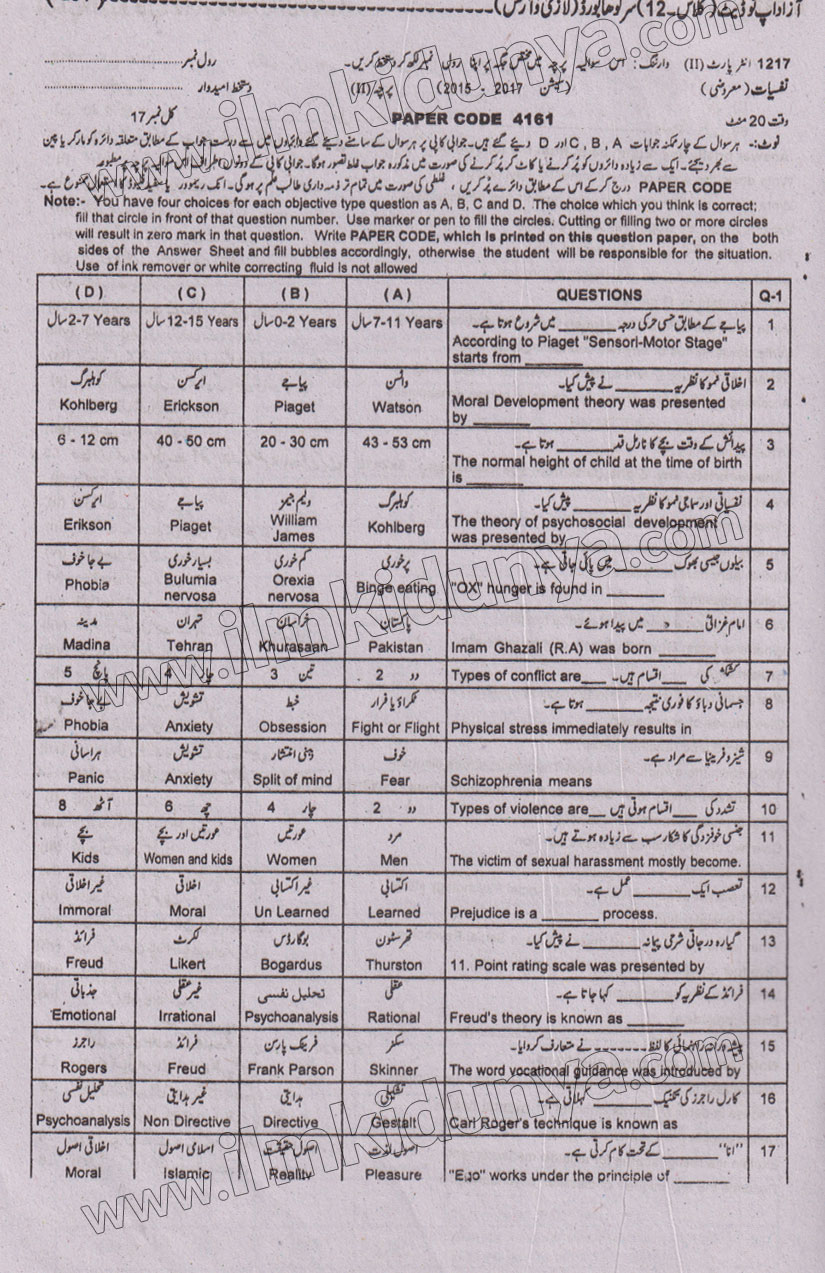 آزاد اپ ٹو ڈیٹ (کلاس۔12) سرگودھا بورڈ (لازمی وارس)
1217 انٹر پارٹ (II) وارننگ: اس سوالیہ پرچہ میں مختص جگہ پر اپنا رول نمبر لکھ کر دستخط کریں۔ رول نمبر
نفسیات (معروضی) (سیشن 2015 - 2017) پرچہ (II) دستخط امیدوار
وقت 20 منٹ PAPER CODE 4161 کل نمبر 17
نوٹ:- ہر سوال کے چار ممکنہ جوابات A ، B ، C اور D دیئے گئے ہیں۔ جوابی کاپی پر ہر سوال کے سامنے دیئے گئے دائروں میں سے درست جواب کے مطابق متعلقہ دائرہ کو مارکر یا پین
سے بھر دیجئے۔ ایک سے زیادہ دائروں کو پُر کرنے یا کاٹ کر پُر کرنے کی صورت میں مذکورہ جواب غلط تصور ہوگا۔ جوابی کاپی کے دونوں اطراف اس سوالیہ پرچہ پر مطبوعہ
PAPER CODE درج کر کے اس کے مطابق دائرے پُر کریں ، غلطی کی صورت میں تمام تر ذمہ داری طالب علم پر ہوگی۔ انک ریموور یا سفید فلیوڈ کا استعمال ممنوع ہے۔
Note:- You have four choices for each objective type question as A, B, C and D. The choice which you think is correct;
fill that circle in front of that question number. Use marker or pen to fill the circles. Cutting or filling two or more circles
will result in zero mark in that question. Write PAPER CODE, which is printed on this question paper, on the both
sides of the Answer Sheet and fill bubbles accordingly, otherwise the student will be responsible for the situation.
Use of ink remover or white correcting fluid is not allowed
( D ) ( C ) ( B ) ( A ) QUESTIONS Q-1
2-7 Years سال 12-15 Years سال 0-2 Years سال 7-11 Years سال پیاجے کے مطابق حسی حرکی درجہ ______ میں شروع ہوتا ہے۔ 1
According to Piaget "Sensori-Motor Stage"
starts from ______
کوہلبرگ ایرکسن پیاجے واٹسن اخلاقی نمو کا نظریہ ______ نے پیش کیا۔ 2
Kohlberg Erickson Piaget Watson Moral Development theory was presented
by ______
6 - 12 cm 40 - 50 cm 20 - 30 cm 43 - 53 cm پیدائش کے وقت بچے کا نارمل قد ______ ہوتا ہے۔ 3
The normal height of child at the time of birth
is ______
ایرکسن پیاجے ولیم جیمز کوہلبرگ نفسیاتی اور سماجی نمو کا نظریہ ______ پیش کیا۔ 4
Erikson Piaget William James Kohlberg The theory of psychosocial development
was presented by ______
بے جا خوف بسیار خوری کم خوری پرخوری بیلوں جیسی بھوک ______ میں پائی جاتی ہے۔ 5
Phobia Bulumia nervosa Orexia nervosa Binge eating "OX" hunger is found in ______
مدینہ تہران خراسان پاکستان امام غزالی ______ میں پیدا ہوئے۔ 6
Madina Tehran Khurasaan Pakistan Imam Ghazali (R.A) was born ______
5 پانچ 4 چار 3 تین 2 دو Types of conflict are___ کشمکش کی ___ اقسام ہیں۔ 7
بے جا خوف تشویش خبط ٹکراؤ یا فرار جسمانی دباؤ کا فوری نتیجہ ______ ہوتا ہے۔ 8
Phobia Anxiety Obsession Fight or Flight Physical stress immediately results in
ہراسانی تشویش ذہنی انتشار خوف شیزوفرینیا سے مراد ہے۔ 9
Panic Anxiety Split of mind Fear Schizophrenia means
8 آٹھ 6 چھ 4 چار 2 دو Types of violence are__ تشدد کی ___ اقسام ہوتی ہیں 10
بچے عورتیں اور بچے عورتیں مرد جنسی خوفزدگی کا شکار سب سے زیادہ ہوتے ہیں۔ 11
Kids Women and kids Women Men The victim of sexual harassment mostly become.
غیر اخلاقی اخلاقی غیر اکتسابی اکتسابی تعصب ایک ______ عمل ہے۔ 12
Immoral Moral Un Learned Learned Prejudice is a ______ process.
فرائڈ لکرٹ بوگارڈس تھرسٹون گیارہ درجاتی شرحی پیمانہ ______ نے پیش کیا۔ 13
Freud Likert Bogardus Thurston 11. Point rating scale was presented by
جذباتی غیر عقلی تحلیل نفسی عقلی فرائڈ کے نظریہ کو ______ کہا جاتا ہے۔ 14
Emotional Irrational Psychoanalysis Rational Freud's theory is known as ______
راجرز فرائڈ فرینک پارسن سکنر پیشہ ورانہ راہنمائی کا لفظ ------- نے متعارف کروایا۔ 15
Rogers Freud Frank Parson Skinner The word vocational guidance was introduced by
تحلیل نفسی غیر ہدایتی ہدایتی تشکیلی کارل راجرز کی تکنیک ______ کہلاتی ہے۔ 16
Psychoanalysis Non Directive Directive Gestalt Carl Roger's technique is known as
اخلاقی اصول اسلامی اصول اصول حقیقت اصول لذت "انا" ______ کے تحت کام کرتی ہے۔ 17
Moral Islamic Reality Pleasure "Ego" works under the principle of ______
www.ilmkidunya.com
www.ilmkidunya.com
www.ilmkidunya.com
www.ilmkidunya.com